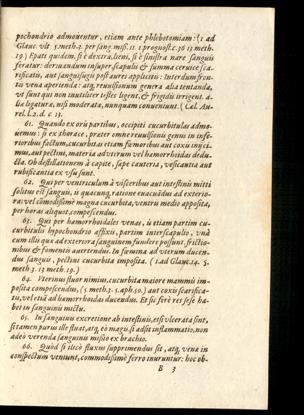 pochondrio admoventur, etiam ante phlebotomiam: (1 ad
Glauc. vlt 5. meth. 3. per sang. miss. 11. 1. prognost. c. 36 13 meth.
19.) Epati quidem, si è dextra, lieni, si è sinistra nare sanguis
feratur: deruandum insuper scapulis & summa ceruice sca-
rificatis, aut sanguisugis post aures applicitis: Interdum fron-
tis vena aperienda: atq, reuulsionum genera alia tentanda,
vt sunt qui non inutiliter testes ligent, & frigidis irrigent. a-
lia ligatura, nisi moderata, nunquam conueniunt. (Cal. Au-
rel. l. 2. d. c. 13.
61. Quando ex oris partibus, occipiti cucurbitulas admo-
uemus: si ex thorace, præter omne reuulsionis genus in infe-
rioribus factum, cucurbitas etiam fœmoribus aut coxis injici-
mus, aut pectini, materia ad vterum vel hæmorrhoidas dedu-
cta. Ob destillationem à capite, sæpe cauteria, vesicantia aut
rubificantia ex vsu sunt.
62. Quòd per ventriculum à visceribus aut intestinis mitti
solitus est sanguis, is quacunq, ratione euacuādus ad exterio-
ra: vel cōmodissimè magna cucurbita, ventri medio apposita,
per horas aliquot compescendus.
63. Qui per hæmorrhoidales venas, is etiam partim cu-
curbitulis hypochondrio affixis, partim interscapulio, vnà
cum illis quæ ad exteriora sanguinem fundere possunt, frictio-
nibus & fomentis auertendus. In fœmina ad vterum ducen-
dus sanguis, pectini cucurbita imposita. (1. ad Glauc. 14. 5.
meth. 3. 13 meth. 19.)
64. Vterinus fluor nimius, cucurbita maiore mammis im-
posita compescendus, (5. meth. 3. 5. aph. 50.) aut coxis scarifica-
tis, vel etiā ad hæmorrhoidas ducendus. Et sic ferè res sese ha-
bet in sanguinis mictu.
65. In sanguinis excretione ab intestinis, etsi vlcerata sint,
si tamen purus ille fluat, atq, eò magis si adsit inflammatio, non
adeò verenda sanguinis missio ex brachio.
66. Quòd si ictcò fluxus supprimendus sit, atq, venæ in
conspectum veniunt, commodissimè ferro inuruntur: hoc ob-
B 3